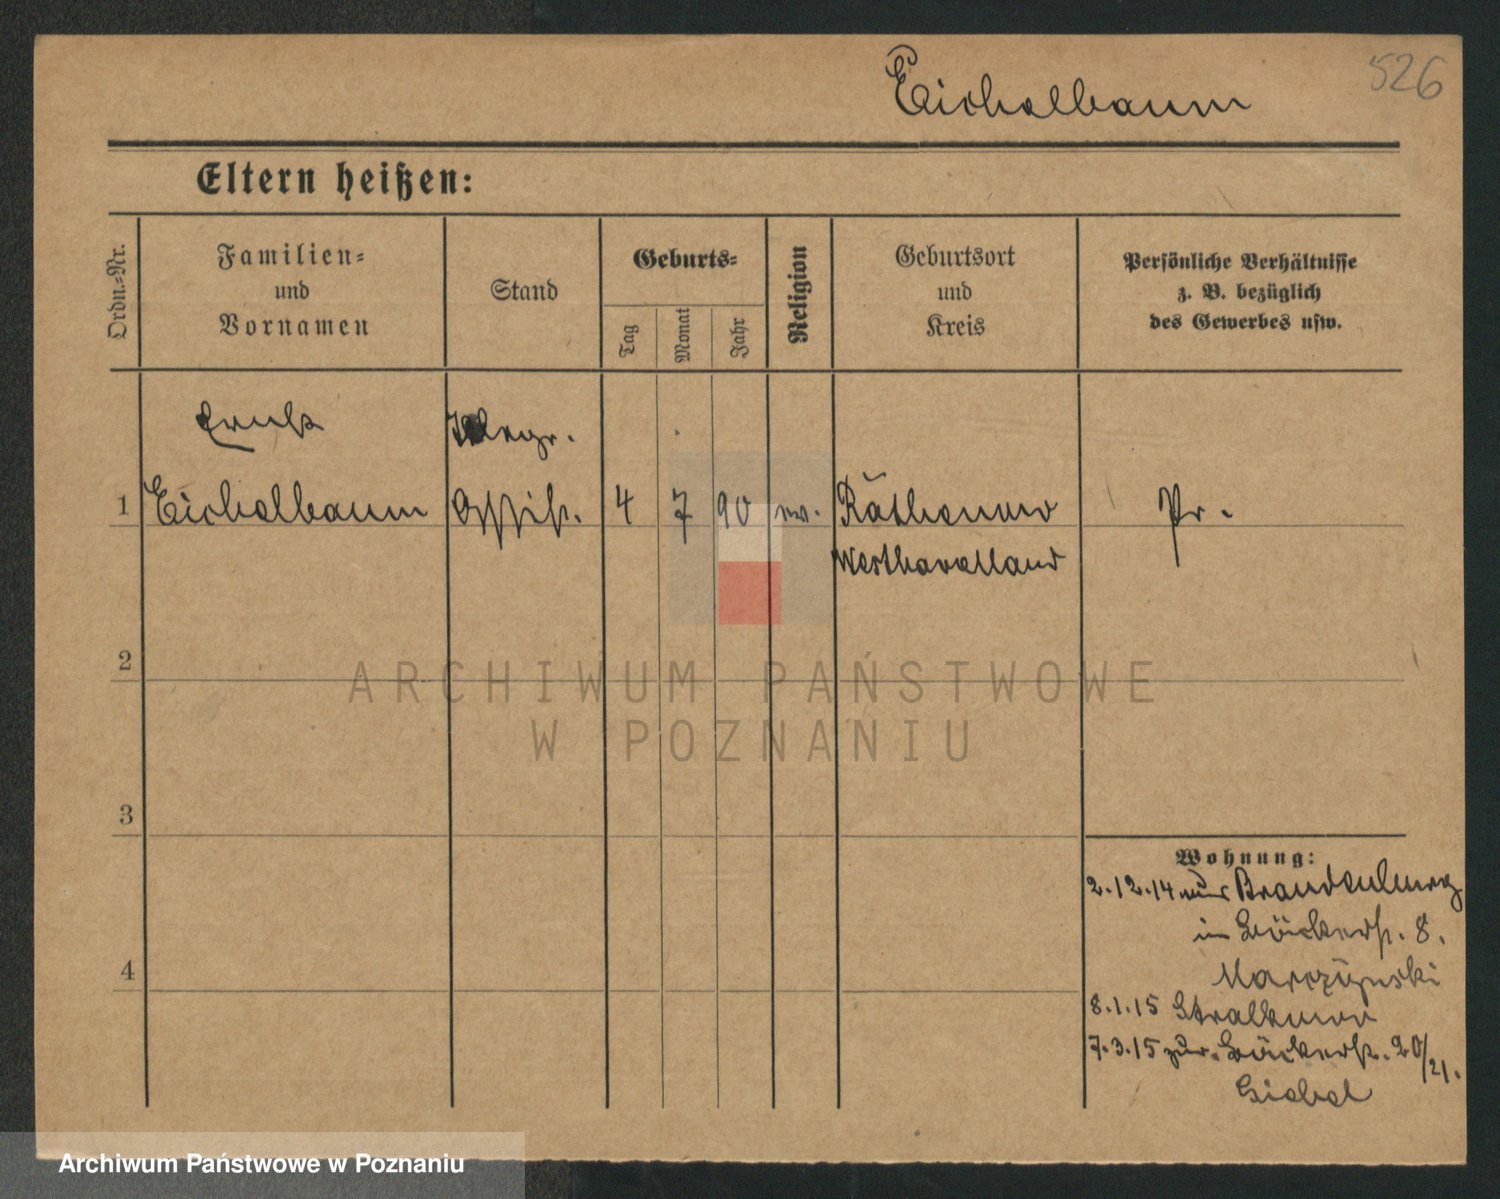 526
Eichelbaum
Eltern heißen:
Ordn.=Nr.
Familien=
und
Vornamen
Stand
Geburts=
Tag
Monat
Jahr
Religion
Geburtsort
und
Kreis
Persönliche Verhältnisse
z. B. bezüglich
des Gewerbes usw.
Ernst
Telegr.
1 Eichelbaum Assist. 4 7 90 ev. Rathenow Pr.
Westhavelland
2
3
4
Wohnung:
2.12.14 aus Brandenburg
in Bäckerst. 8.
8.1.15
7.3.15 zur. Bäckerst. 20/21.
Giebel
ARCHIWUM PAŃSTWOWE
W POZNANIU
Archiwum Państwowe w Poznaniu